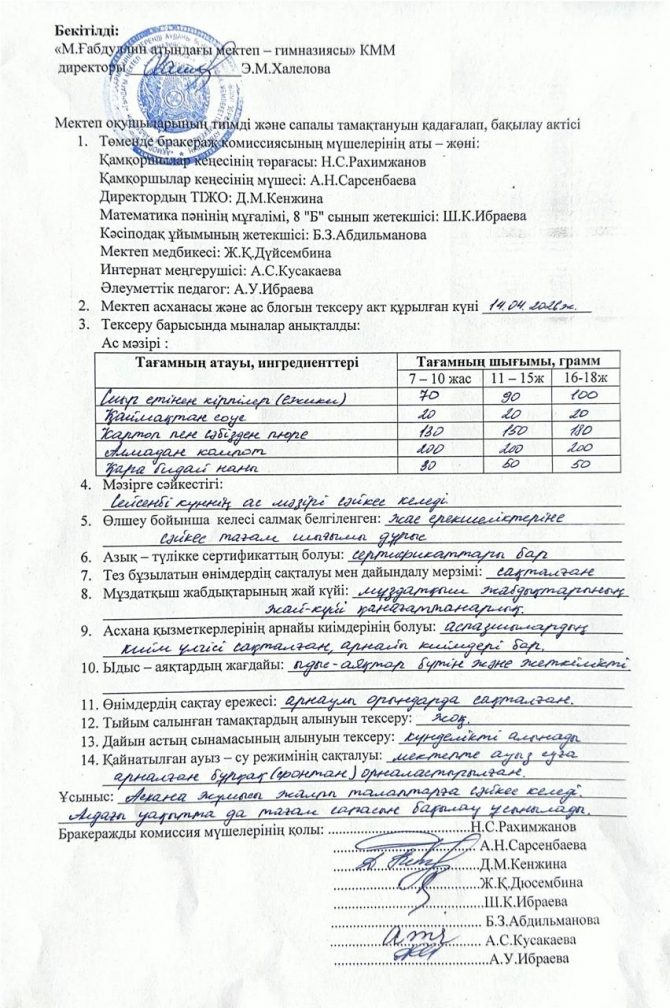 Бекітілді:
«М.Ғабдуллин атындағы мектеп – гимназиясы» КММ
директоры Э.М.Халелова
Мектеп оқушыларының тиімді және сапалы тамақтануын қадағалап, бақылау актісі
1. Төменде бракераж комиссиясының мүшелерінің аты – жөні:
Қамқоршылар кеңесінің төрағасы: Н.С.Рахимжанов
Қамқоршылар кеңесінің мүшесі: А.Н.Сарсенбаева
Директордың ТІЖО: Д.М.Кенжина
Математика пәнінің мұғалімі, 8 "Б" сынып жетекшісі: Ш.К.Ибраева
Кәсіподақ ұйымының жетекшісі: Б.З.Абдильманова
Мектеп медбикесі: Ж.Қ.Дүйсембина
Интернат меңгерушісі: А.С.Кусакаева
Әлеуметтік педагог: А.У.Ибраева
2. Мектеп асханасы және ас блогын тексеру акт құрылған күні 14.04.2026ж.
3. Тексеру барысында мыналар анықталды:
Ас мәзірі :
Тағамның атауы, ингредиенттері Тағамның шығымы, грамм
7 – 10 жас 11 – 15ж 16-18ж
Сиыр етінен кірпілер (ежики) 70 90 100
Қаймақтан соус 20 20 20
Картоп пен сәбізден пюре 130 150 180
Алмадан компот 200 200 200
Қара бидай наны 30 50 50
4. Мәзірге сәйкестігі:
Сейсенбі күннің ас мәзірі сәйкес келеді
5. Өлшеу бойынша келесі салмақ белгіленген: жас ерекшеліктеріне
сәйкес тағам шығымы дұрыс
6. Азық – түлікке сертификаттың болуы: сертификаттары бар
7. Тез бұзылатын өнімдердің сақталуы мен дайындалу мерзімі: сақталған
8. Мұздатқыш жабдықтарының жай күйі: мұздатқыш жабдықтарының
жай-күйі қанағаттанарлық.
9. Асхана қызметкерлерінің арнайы киімдерінің болуы: аспазшылардың
киім үлгісі сақталған, арнайы киімдері бар.
10. Ыдыс – аяқтардың жағдайы: ыдыс-аяқтар бүтін және жеткілікті
11. Өнімдердің сақтау ережесі: арнаулы орындарда сақталған.
12. Тыйым салынған тамақтардың алынуын тексеру: жоқ.
13. Дайын астың сынамасының алынуын тексеру: күнделікті алынады
14. Қайнатылған ауыз – су режимінің сақталуы: мектепте ауыз суға
арналған бұрқақ (фонтан) орналастырылған.
Ұсыныс: Асхана жұмысы жалпы талаптарға сәйкес келеді.
Алдағы уақытта да тағам сапасын бақылау ұсынылады.
Бракеражды комиссия мүшелерінің қолы: Н.С.Рахимжанов
А.Н.Сарсенбаева
Д.М.Кенжина
Ж.Қ.Дюсембина
Ш.К.Ибраева
Б.З.Абдильманова
А.С.Кусакаева
А.У.Ибраева